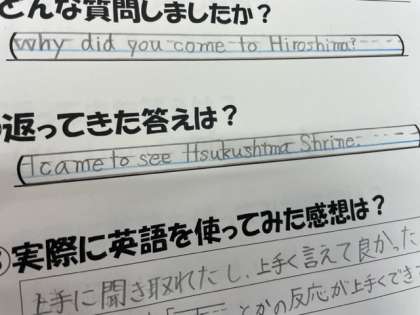 どんな質問しましたか？
Why did you come to Hiroshima?
返ってきた答えは？
I came to see Itsukushima Shrine.
実際に英語を使ってみた感想は？
上手に聞き取れたし、上手く言えて良かった
とかの反応が上手くでき